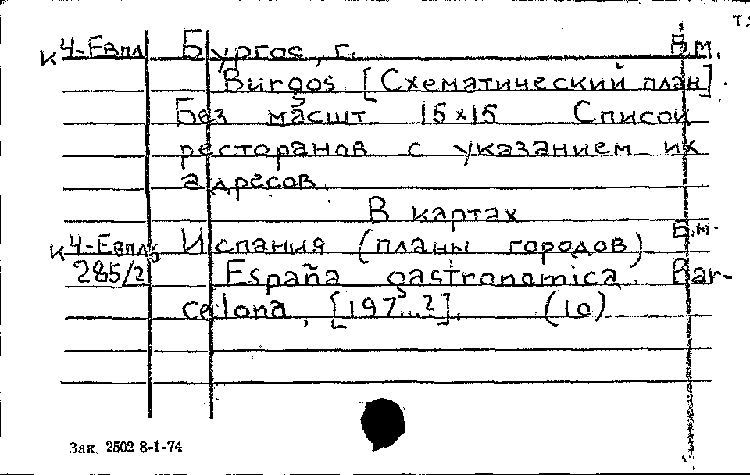 к Ч-Евпл Бургос, г. Б.м.
Burgos [Схематический план].
Без масшт. 15×15 Список
ресторанов с указанием их
адресов.
В картах
к Ч-Евпл Испания (планы городов) Б.м.
285/2 España gastronomica. Bar-
celona, [197...?]. (10)
Зак. 2502 8-1-74